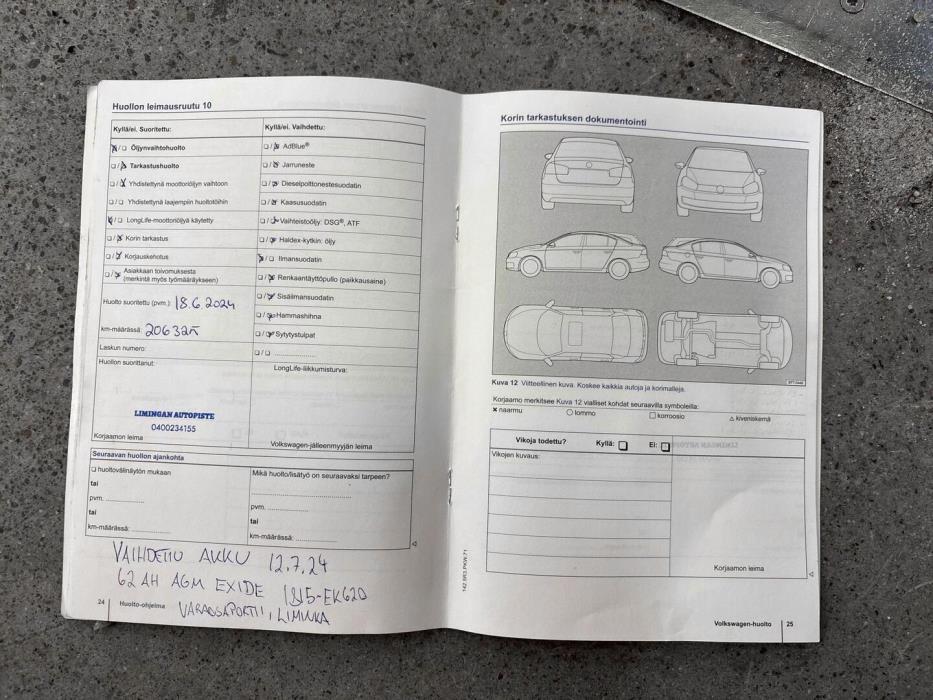 Huollon leimausruutu 10
Kyllä/ei. Suoritettu:
Öljynvaihtohuolto
Tarkastushuolto
Yhdistettynä moottoriöljyn vaihtoon
Yhdistettynä laajempiin huoltotöihin
LongLife-moottoriöljyä käytetty
Korin tarkastus
Korjauskehotus
Asiakkaan toivomuksesta
(merkintä myös työmääräykseen)
Huolto suoritettu (pvm.): 18.6.2024
km-määrässä:
Laskun numero:
Huollon suorittanut:
LIMINGAN AUTOPISTE
0400234155
Korjaamon leima
Kyllä/ei. Vaihdettu:
AdBlue®
Jarruneste
Dieselpolttonestesuodatin
Kaasusuodatin
Vaihteistoöljy: DSG®, ATF
Haldex-kytkin: öljy
Ilmansuodatin
Renkaantäyttöpullo (paikkausaine)
Sisäilmansuodatin
Hammashihna
Sytytystulpat
LongLife-liikkumisturva:
Volkswagen-jälleenmyyjän leima
Seuraavan huollon ajankohta
huoltovälinäytön mukaan
tai
pvm. ................
tai
km-määrässä: ................
Mikä huolto/lisätyö on seuraavaksi tarpeen?
pvm. ................
tai
km-määrässä: ................
VAIHDETTU AKKU 12.7.24
62 AH AGM EXIDE
VARAOSAPORTTI, LIMINKA
24 Huolto-ohjelma
Korin tarkastuksen dokumentointi
Kuva 12 Viitteellinen kuva. Koskee kaikkia autoja ja korimalleja.
Korjaamo merkitsee Kuva 12 vialliset kohdat seuraavilla symboleilla:
× naarmu ○ lommo □ korroosio △ kiveniskemä
Vikoja todettu? Kyllä: □ Ei: □
Vikojen kuvaus:
Korjaamon leima
Volkswagen-huolto 25